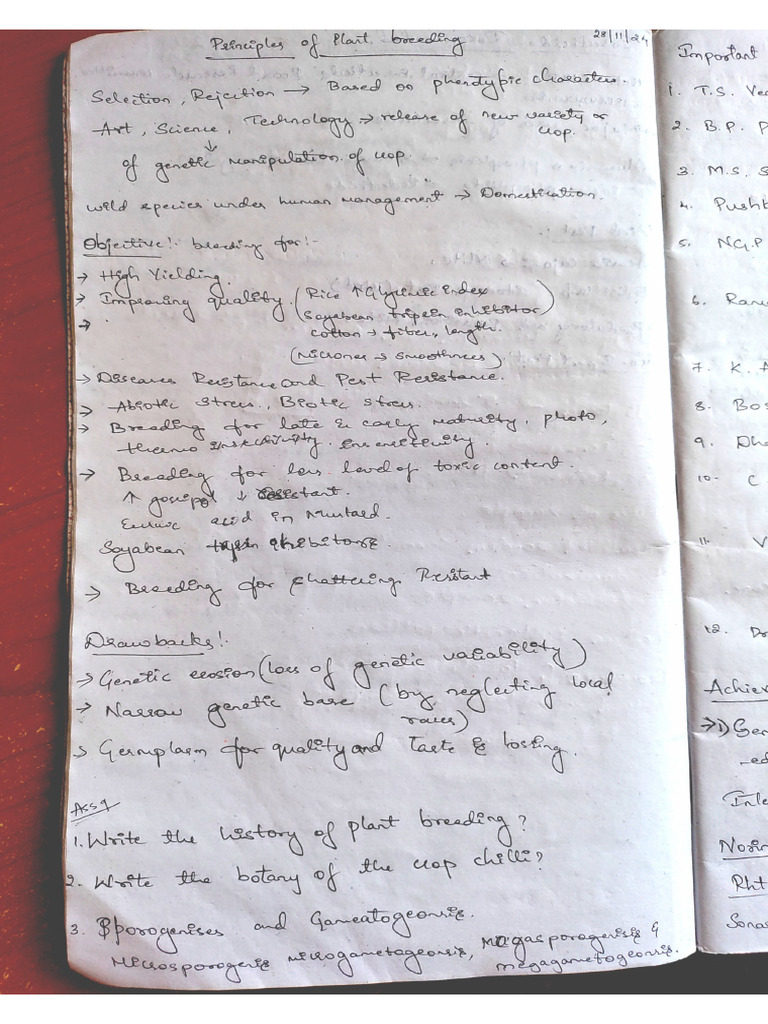 Principles of Plant breeding
28/11/24
Selection, Rejection → Based on phenotypic characters.
Art, Science, Technology → release of new variety or crop.
↓
of genetic manipulation of crop.
wild species under human management → Domestication.
Objective!. breeding for!-
→ High Yielding.
→ Improving quality. (Rice ↑ Glycemic index
Soyabean tripsin inhibitor)
→ .
cotton → fiber, length.
(Microner → smoothness)
→ Diseases Resistance and Pest Resistance.
→ Abiotic stress, Biotic stress.
→ Breeding for late & early maturity, photo,
thermo insensitivity.
→ Breeding for less level of toxic content.
↑ gossipol ↓ resistant.
Euruic acid in Mustard.
Soyabean
→ Breeding for Shattering Resistant
Drawbacks!.
→ Genetic erosion (loss of genetic variability)
→ Narrow genetic base (by neglecting local
races)
→ Germplasm for quality and taste is lossing.
Ass 1
1. Write the history of plant breeding?
2. Write the botany of the crop chilli?
3. Sporogenises and Gameatogeonsis.
Microsporogenis microgametageonsis, Megasporogenisis &
megagametogeonsis.
Important
1. T.S. Ve
2. B.P. P
3. M.S. S
4. Pushk
5. N.G.P
6. Ram
7. K. A
8. Bos
9. Dha
10. C
11. V
12. Dr
Achiev
→ 1) Ger
-ed
Inte
Norin
Rht
Sona